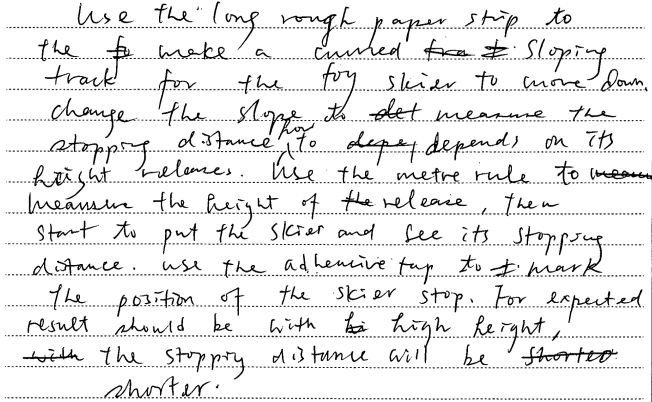 Use the long rough paper strip to
the make a curved sloping
track for the toy skier to move down.
change the slope to measure the
stopping distance how to depends on its
height releases. Use the metre rule to
meansure the height of release, then
start to put the skier and see its stopping
distance. use the adhencive tap to mark
the position of the skier stop. For expected
result should be with high height,
the stopping distance will be
shorter.